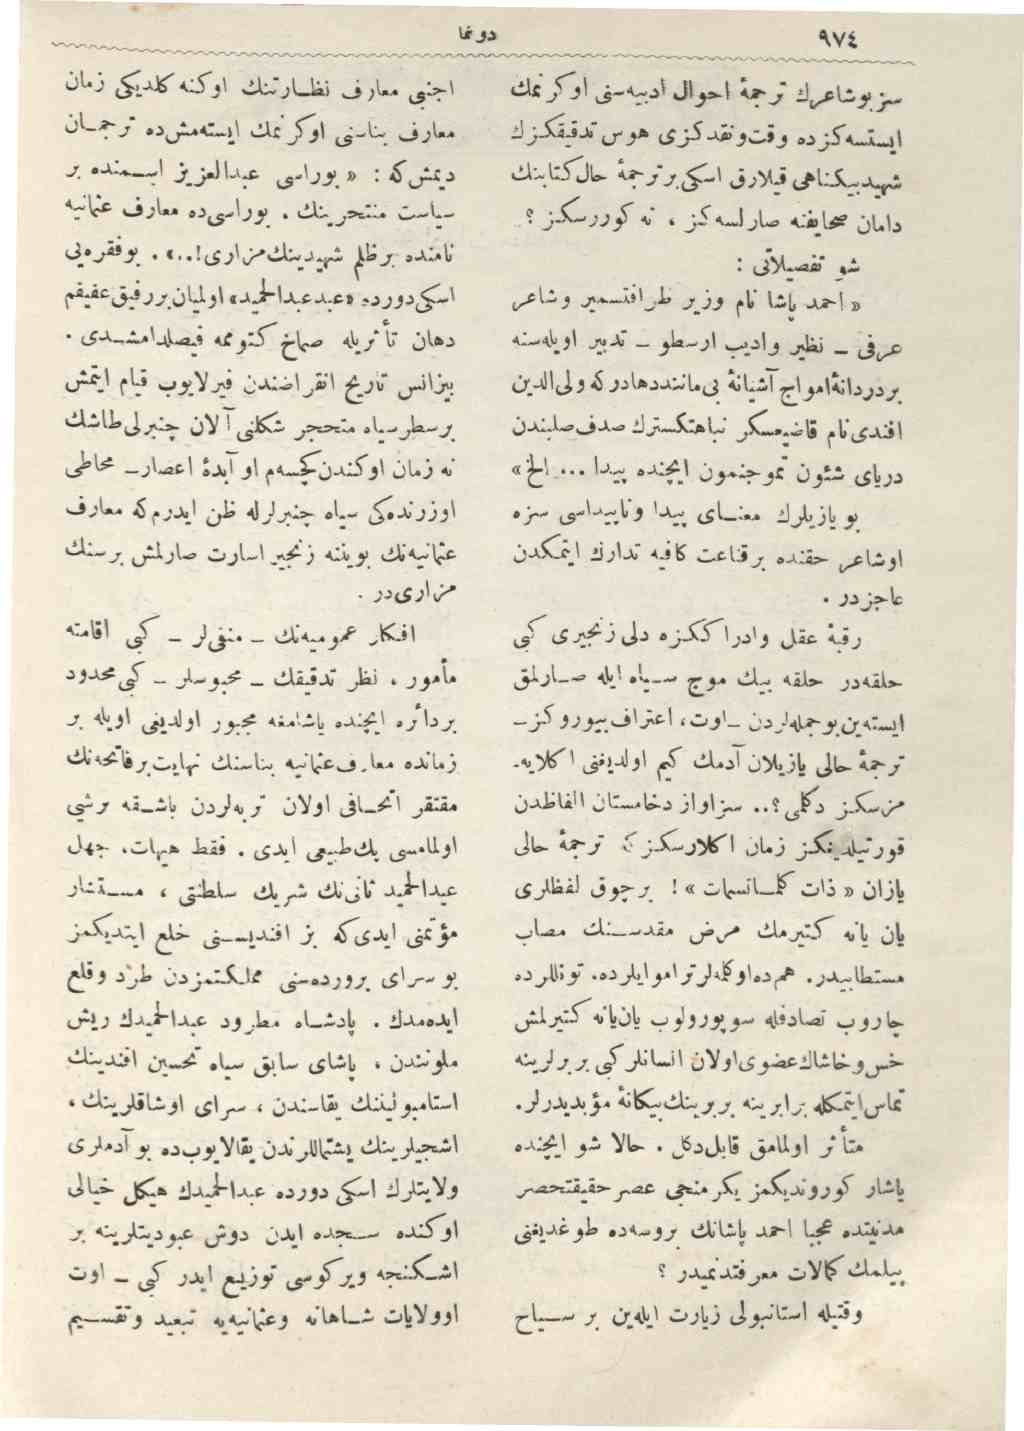 ٩٧٤
دونما
سز بو شاعرك ترجمهٔ احوال ادبيه‌سنی اوكرنمك
ايستسه‌كزده وقت و نقدكزی هوس تدقيقكزك
شهيد بيكناهی قيلارق اسكی بر ترجمهٔ حال كتابنك
دامان صحايفنه صارلسه‌كز ، نه كوررسكز ؟
شو تفصيلاتی :
« احمد پاشا نام وزير ظرافتسمير و شاعر
عرفی ـ نظير و اديب ارسطو ـ تدبير اويله‌سنه
بر دردانهٔ امواج آشيانهٔ بی‌مانند دهادركه ولی‌الدين
افندی نام قاضيعسكر نباهتكسترك صدف صلبندن
دریای شئون تموجنمون ايچنده پيدا ... الخ »
بو يازيلرك معنـای پيدا و ناپيداسی سزه
اوشاعر حقنده بر قناعت كافيه تدارك ايتمكدن
عاجزدر .
رقبهٔ عقل و ادراككزه دلی زنجيری كبی
حلقه‌در حلقه بيك موج سـياه ايله صـارلمق
ايسته‌ين بو جمله‌لردن ـ اوت، اعتراف بيوروكز ـ
ترجمهٔ حالی يازيلان آدمك كيم اولديغنی اكلايه‌ـ
مزسكز دكلمی ؟.. سز اواز دخامستان الفاظدن
قورتيلديغكز زمان اكلارسكز كه ترجمهٔ حالی
يازان « ذات كلـانسمات » ! بر چوق لفظلری
يان يانه كتيرمك مرض مقدسـنك مصاب
مستطابيدر. هم‌ده او كله‌لر تراموايلرده، توننللرده
چاروب تصادفله سوپورولوب يان‌يانه كتيرلمش
خس و خاشاك عضوی اولان انسانلر كبی بربرلرينه
تماس ايتمكله برابرينه بربرينك بيكانهٔ مؤبديدرلر.
متأثر اولمامق قابل دكل . حالا شو ايچنده
ياشار كوروندیكمز يكرمنجی عصر حقيقتحصر
مدنيتده عجبا احمد پاشانك بروسه‌ده طوغديغنی
بيلمك كمالات معرفتدنميدر ؟
وقتيله استانبولی زيارت ايله‌ين بر سـياح
اجنبی معارف نظـارتنك اوكنه كلديكی زمان
معارف بناسنی اوكرنمك ايسته‌مش‌ده ترجمـان
ديمش‌كه : « بوراسی عبدالعزيز اسـمنده بر
سياست منتحرينك . بوراسی‌ده معارف عثمانيه
نامنده بر ظلم شهيدينك مزاری !..» . بو فقره‌یی
اسكی دورده «عبد عبدالحميد» اولميان بر رفيق عفيفم
دهان تأثريله صماخ كتوممه فيصلدامشـدی .
بيزانس تاريخ انقراضندن فيرلايوب قيام ايتمش
بر سطر سياه متحجر شكلنی آلان چنبرلی‌طاشك
نه زمان اوكندن كچسه‌م او آبدهٔ اعصار ـ محاطی
اوزرنده‌كی سياه چنبرلرله ظن ايدرم‌كه معارف
عثمانيه‌نك بويننه زنجير اسارت صارلمش بر سنك
مزاری‌در .
افـكار عموميه‌نك ـ منفی‌لر ـ كبی اقامته
مأمور ، نظر تدقيقك ـ محبوسلر ـ كبی محدود
بر دائره ايچنده ياشامغه مجبور اولديغی اويله بر
زمانده معارف عثمانيه بناسنك نهايت بر فاتحه‌نك
مفتقر اتحـافی اولان تربه‌لردن باشـقه برشی
اولمامسی پك طبيعی ايدی . فقط هيهات، جهل
عبدالحميد ثانی‌نك شريك سلطنتی ، مسـتشار
مؤتمنی ايدی‌كه بز افنديسـنی خلع ايتديكمز
بو سرای پرورده‌سنی مملكـتمزدن طرد و قلع
ايده‌مدك . پادشـاه مطرود عبدالحميدك ريش
ملونندن ، پاشای سابق سياه تحسين افندينك
استامبوليننك يقاسندن ، سرای اوشاقلرينك ،
اشجيلرينك پشتماللرندن يقالايوب‌ده بو آدملری
ولايتلرك اسكی دورده عبدالحميدك هيكل خيالی
اوكنده سـجده ايدن دوش عبوديتلرينه بر
اشـكنجه ويركوسی توزيـع ايدر كبی ـ اوت
اوولايات شـاهانه و عثمانيه‌يه تبعيد و تقسـيم